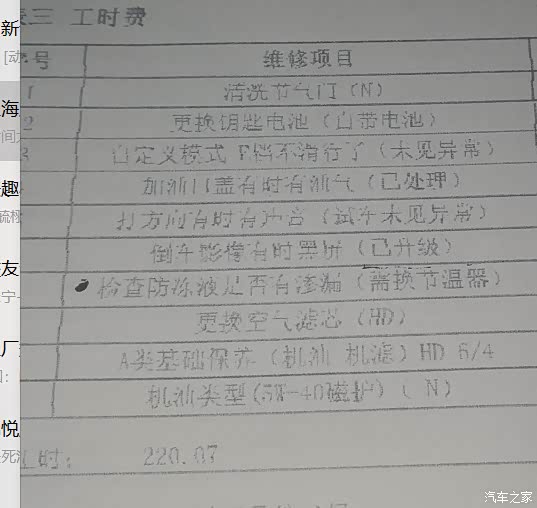 表三 工时费
新
[动
序号 维修项目
1 清洗节气门(N)
海
2 更换钥匙电池(自带电池)
间
3 自定义模式 E档不滑行了(未见异常)
趣
加油口盖有时有油气(已处理)
硫
打方向有时有声音(试车未见异常)
友
倒车影像有时黑屏(已升级)
宁
检查防冻液是否有渗漏(需换节温器)
厂
更换空气滤芯(HD)
A类基础保养(机油 机滤)HD 6/4
机油类型(5W-40磁护)( N)
悦
死
工时: 220.07
汽车之家